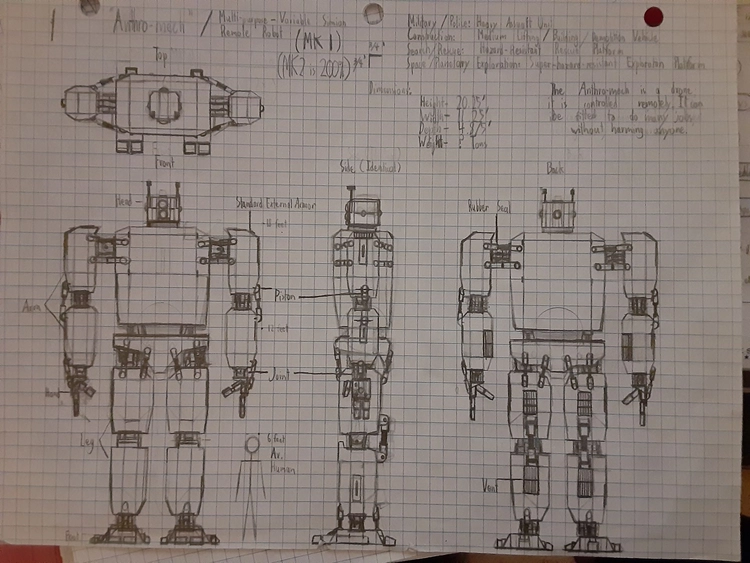 1
"Anthro-mech" / Multi-purpose-Variable Simian
Remote Robot (MK 1)
(MK2 is 200%)
3/4"
3/4"
Military/Police: Heavy Assault Unit
Construction: Medium Lifting/ Demolition Vehicle
Search/Rescue: Hazard-Resistant Rescue Platform
Space/Planetary Exploration: Super-hazard-resistant Exploration Platform
Dimensions:
Height- 20.25'
Width-
Depth- 4.875'
Weight- ? Tons
The Anthro-mech is a drone
it is controled remotely. It can
be fitted to do many jobs
without harming anyone.
Top
Front
Side (Identical)
Back
Head
Standard External Armor
18 feet
Rubber Seal
Arm
Piston
12 feet
Joint
Hand
Leg
6 feet
Av.
Human
Vent
Foot